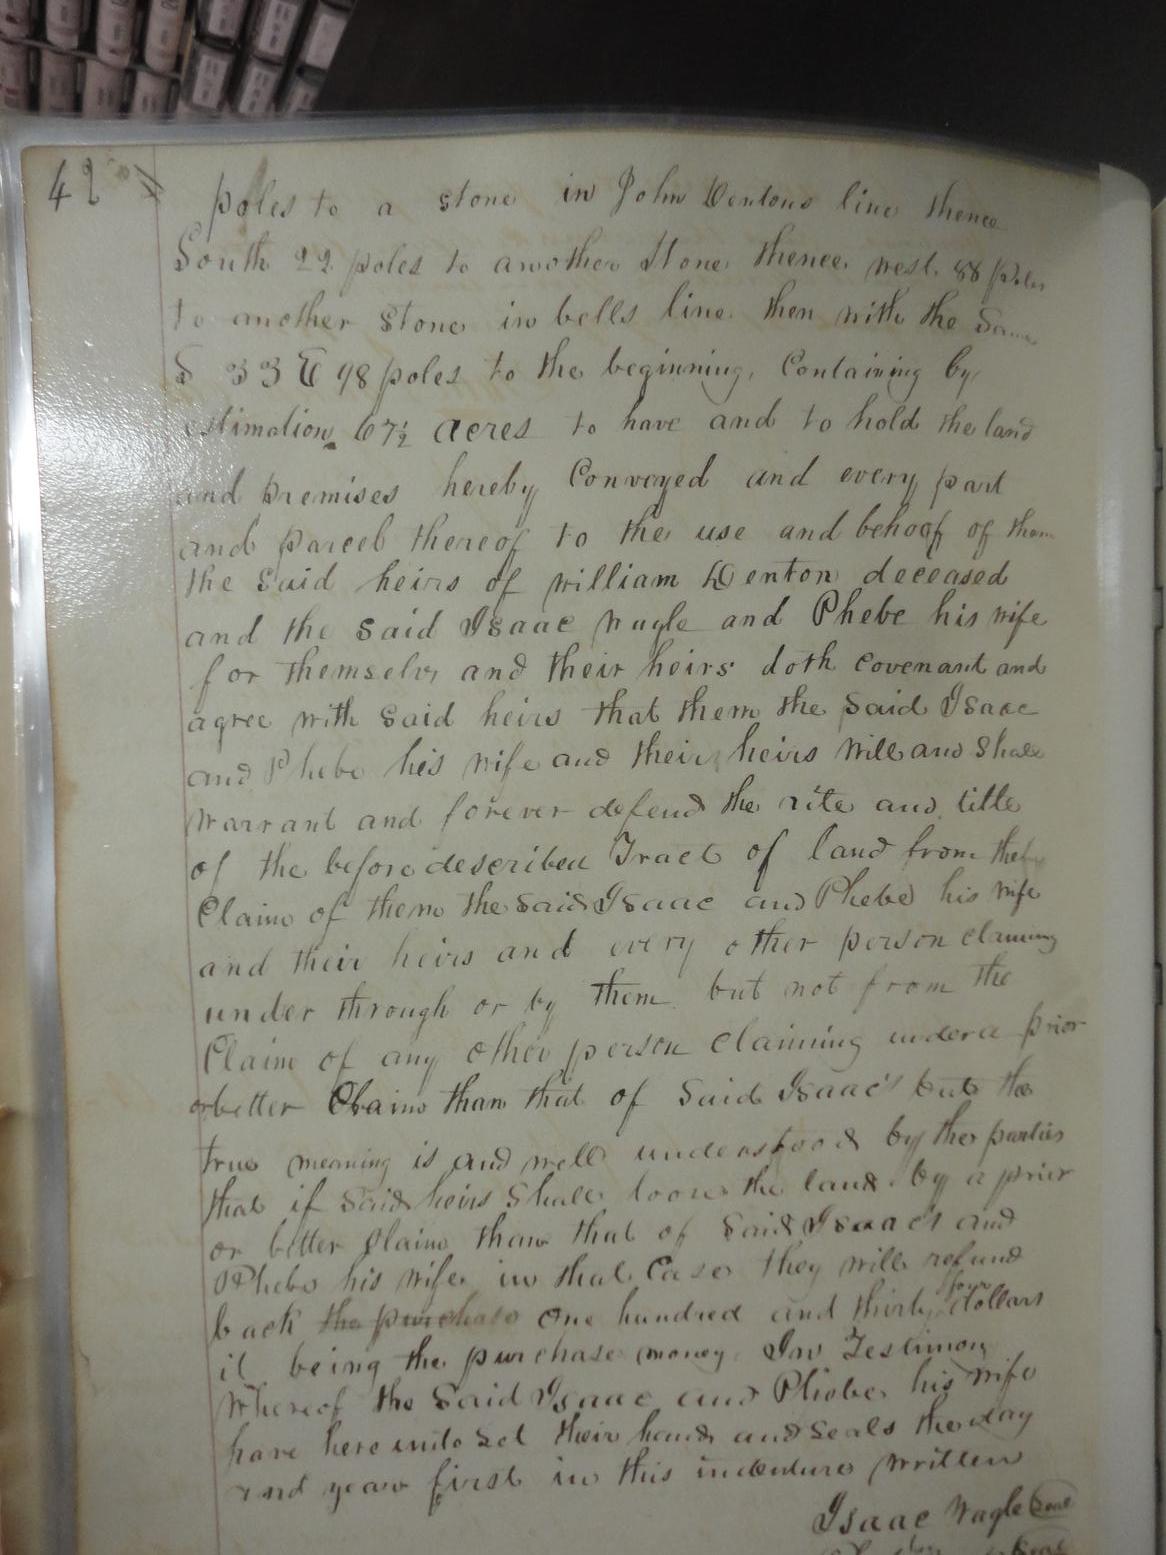 42
poles to a stone in John Dentons line thence
South 22 poles to another Stone thence west 88 poles
to another Stone in bells line then with the Same
S 33 E 98 poles to the beginning, Containing by
estimation 67½ acres to have and to hold the land
and premises hereby Conveyed and every part
and parcel thereof to the use and behoof of them
the Said heirs of william Denton deceased
and the said Isaac Nagle and Phebe his wife
for themselvs and their heirs doth covenant and
agree with said heirs that them the said Isaac
and Phebe his wife and their heirs will and Shall
warrant and forever defend the rite and title
of the before described Tract of land from the
Claim of them the said Isaac and Phebe his wife
and their heirs and every other person claiming
under through or by them but not from the
Claim of any other person claiming under a prior
or better Claim than that of Said Isaac's but the
true meaning is and well understood by the parties
that if said heirs Shall loose the land by a prior
or better Claim than that of Said Isaac's and
Phebe his wife in that Case they will refund
back the purchase one hundred and thirty four dollars
it being the purchase money In Testimony
Whereof the Said Isaac and Phebe his wife
have here unto set their hands and seals the day
and year first in this indenture written
Isaac Nagle Seal
Seal